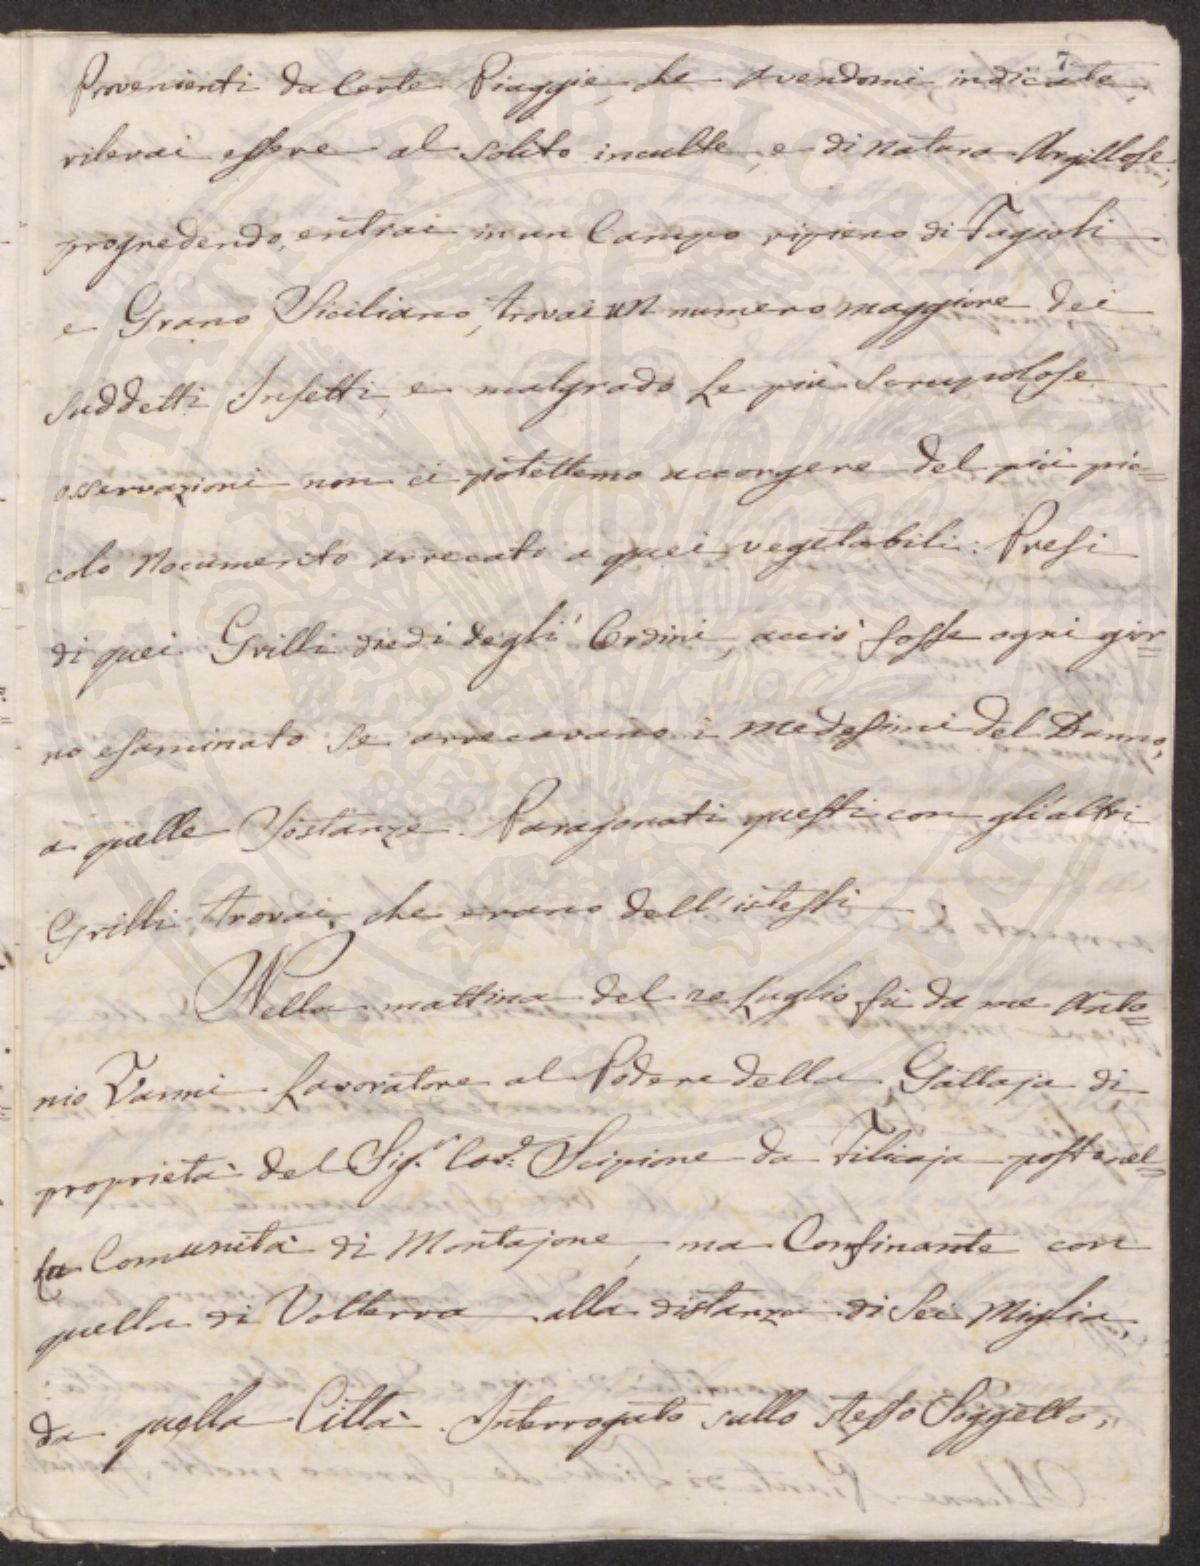 7
Provenienti da Certe Piaggie, che avendomi indicate,
rilevai essere al solito inculte, e di natura Argillose,
progredendo, entrai in un Campo ripieno di Fagioli
e Grano Siciliano, trovai un numero maggiore dei
suddetti Insetti, e malgrado le più Scrupolose
osservazioni non ci potettemo accorgere del più pic=
colo Nocumento arrecato a quei vegetabili: Presi
di quei Grilli diedi degli' Ordini, acciò fosse ogni gior=
no esaminato se arrecavano i medesimi del Danno,
a quelle Sostanze. Paragonati questi con gli altri
Grilli, trovai, che erano dell'istessi.
Nella mattina del 2e Luglio fù da me Anto=
nio Vanni Lavoratore al Podere della Gattaja di
proprietà del Sig.r Cav.e Scipione da Filicaja posto nel=
la Comunità di Montajone, ma Confinante con
quella di Volterra alla distanza di Sei Miglia,
da quella Città. Interrogato sullo stesso Soggetto,
PUBLICA